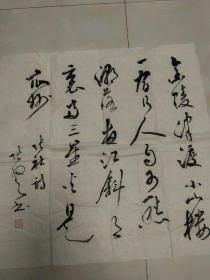 金陵津渡小山楼
一宿行人自可愁
潮落夜江斜月
裏两三星火是
瓜州
张祜诗